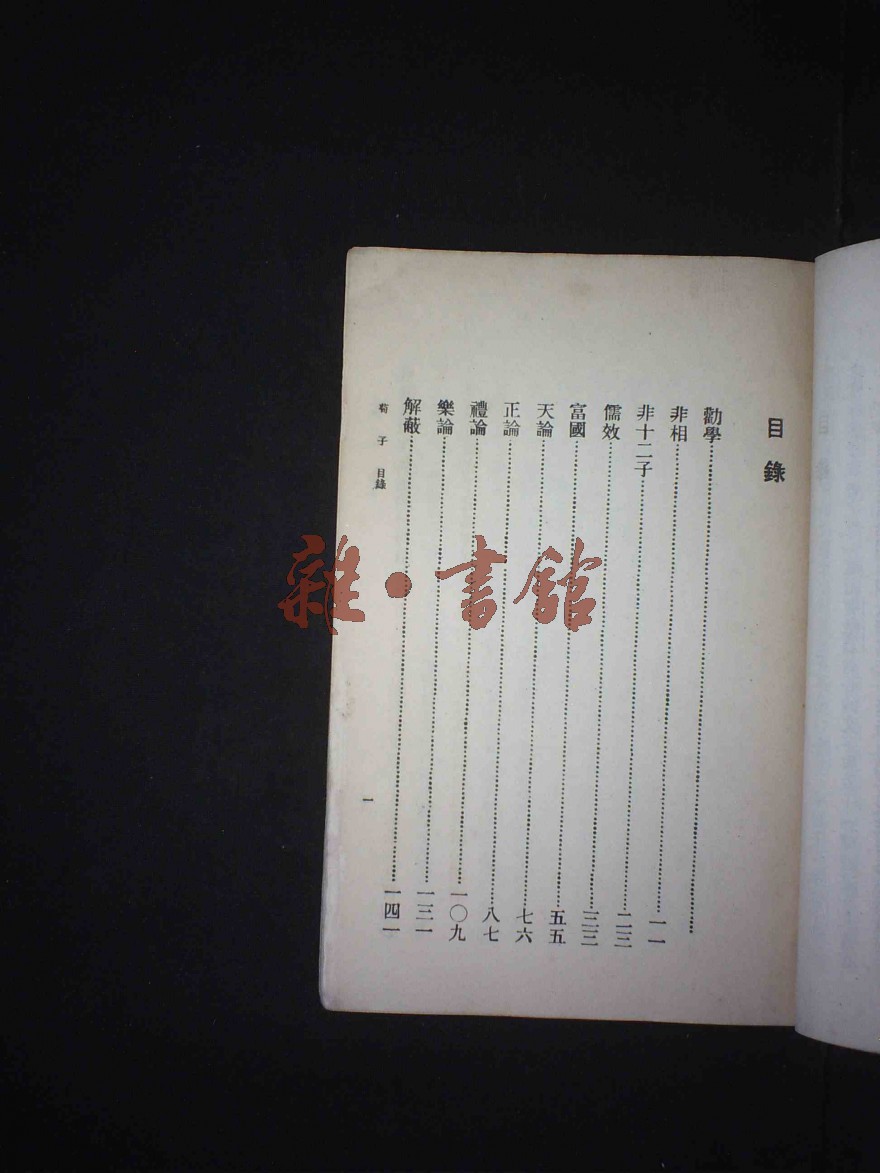 目錄
勸學
非相……一一
非十二子……二三
儒效……三三
富國……五五
天論……七六
正論……八七
禮論……一〇九
樂論……一三一
解蔽……一四一
荀子 目錄
一
雜·書館